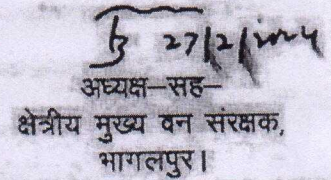 27/2/2024
अध्यक्ष–सह–
क्षेत्रीय मुख्य वन संरक्षक,
भागलपुर।